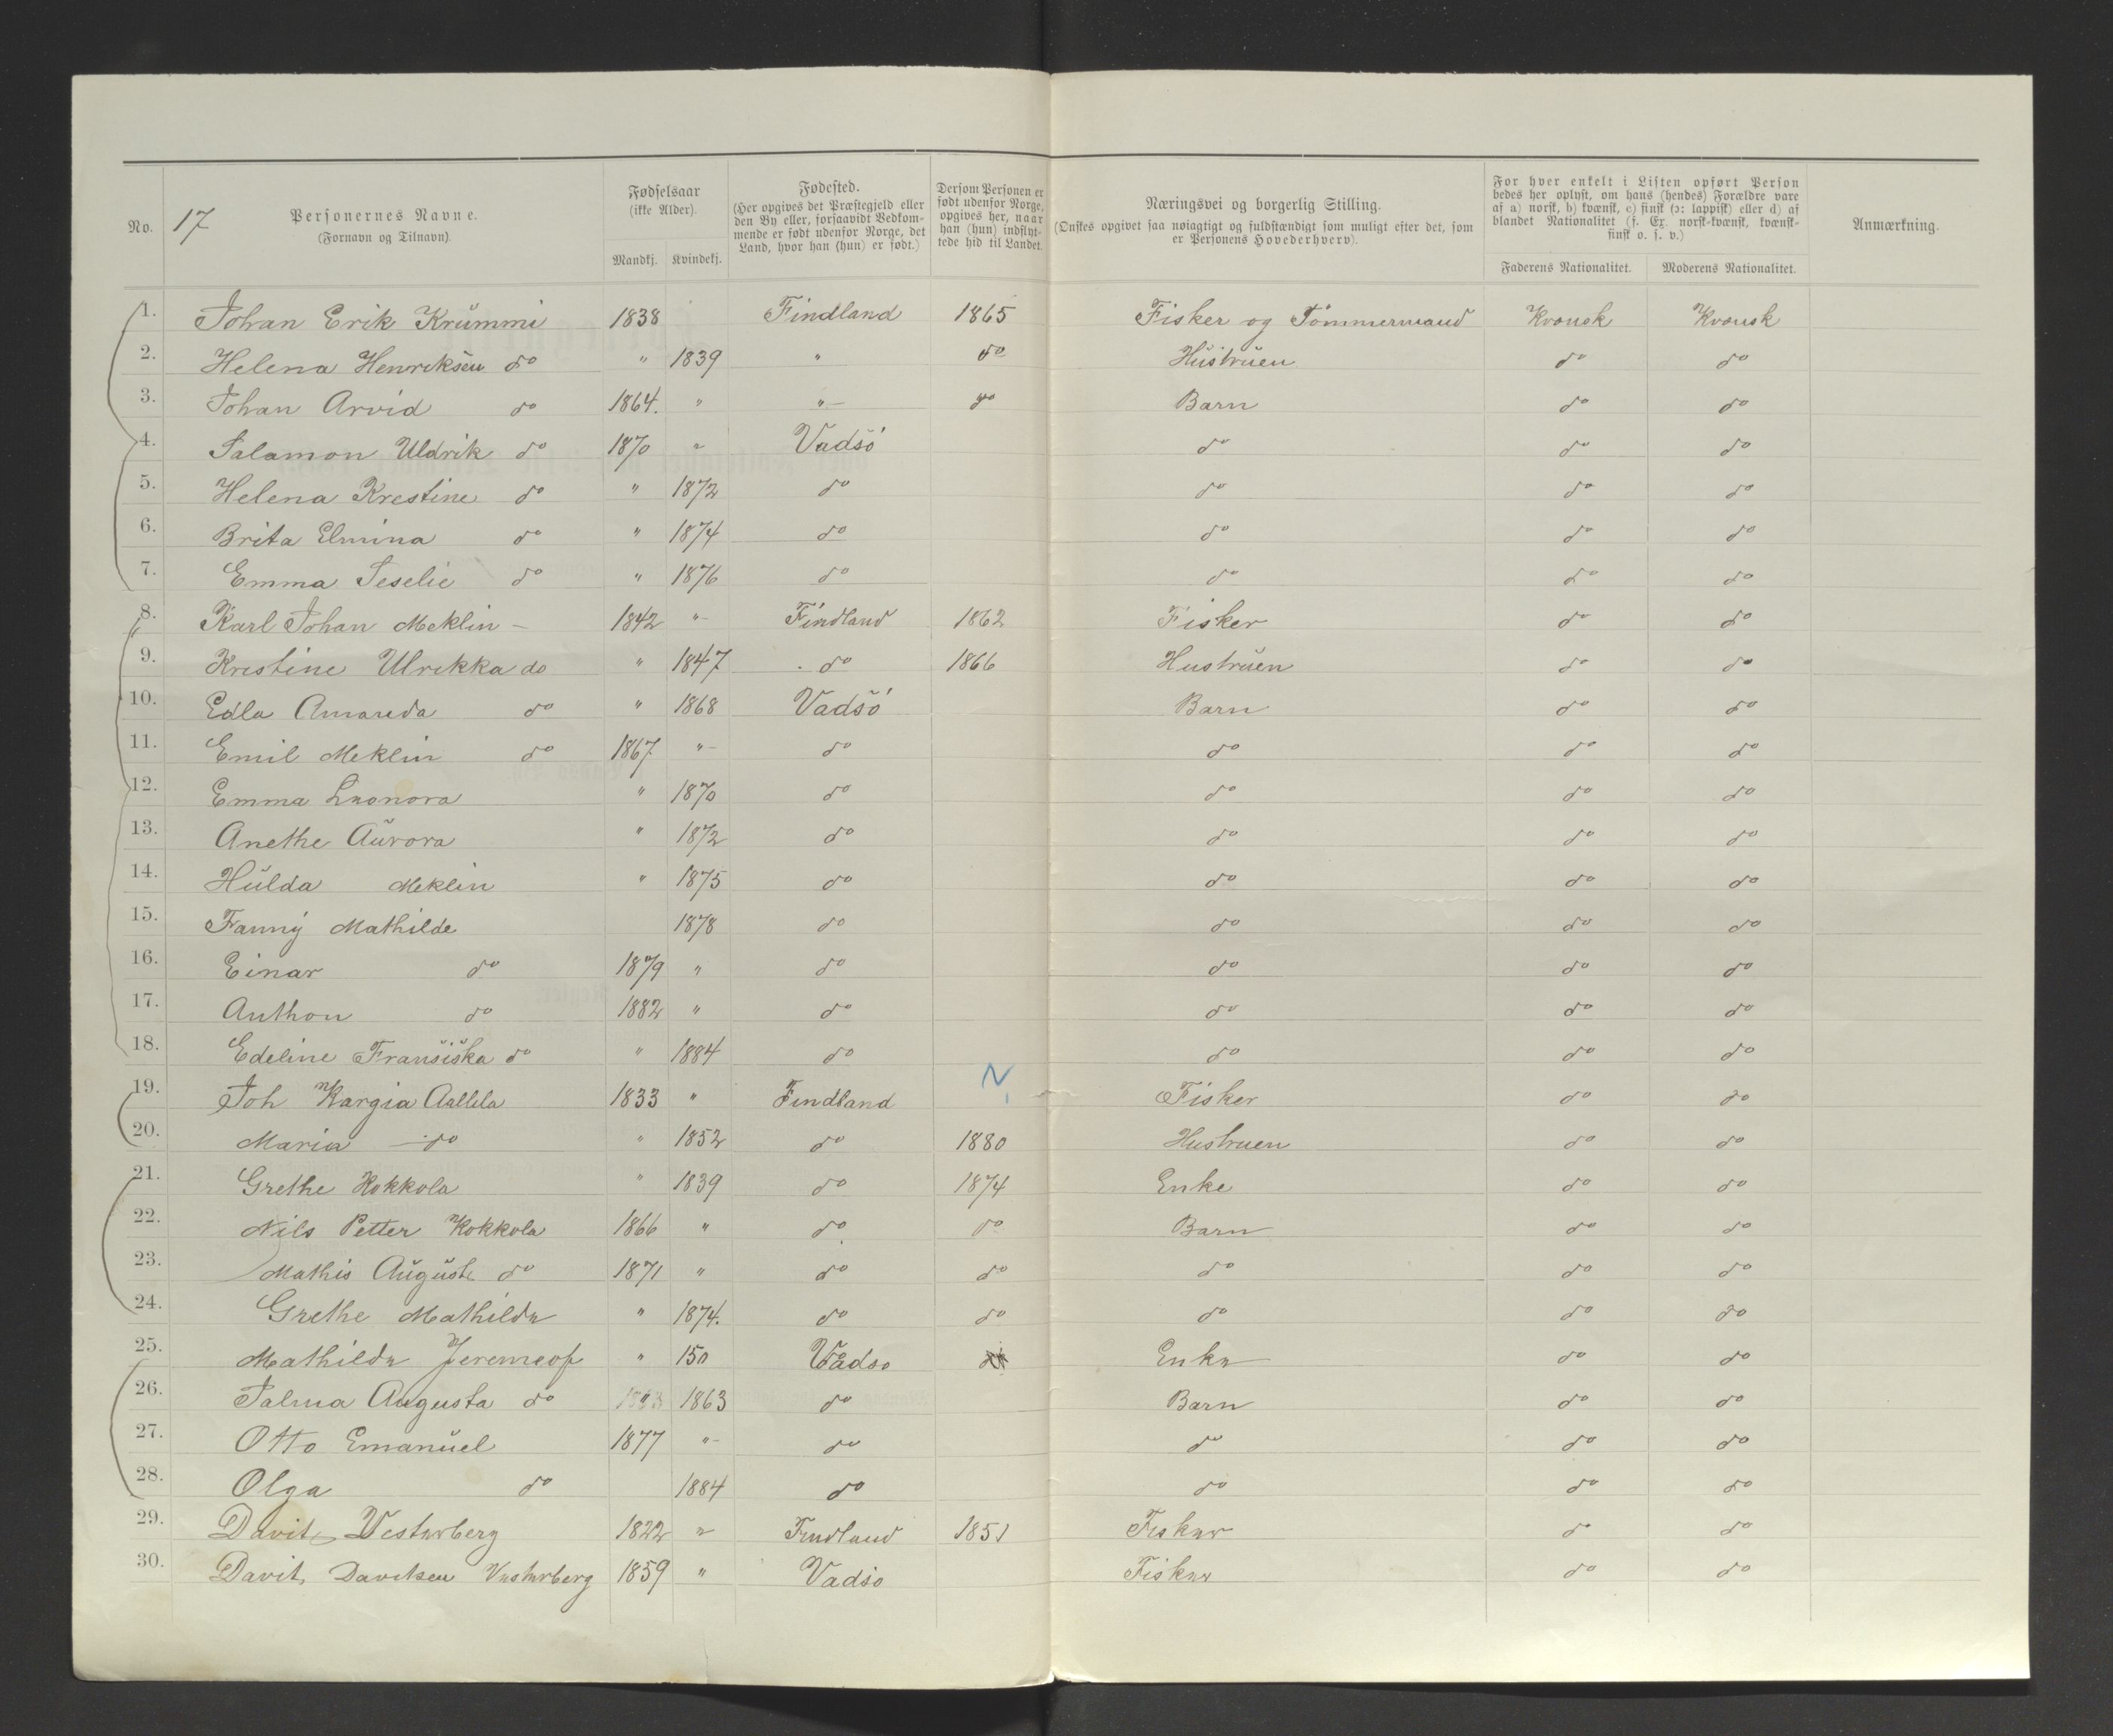 No. 17 Personernes Navne. (Fornavn og Tilnavn). Fødselsaar (ikke Alder). Mandkj. Kvindekj. Fødested. (Her opgives det Præstegjeld eller den By eller, forsaavidt Vedkommende er født udenfor Norge, det Land, hvor han (hun) er født.) Dersom Personen er født udenfor Norge, opgives her, naar han (hun) indflyttede hid til Landet. Næringsvei og borgerlig Stilling. (Ønskes opgivet saa nøiagtigt og fuldstændigt som muligt efter det, som er Personens Hovederhverv). For hver enkelt i Listen opført Person bedes her oplyst, om hans (hendes) Forældre vare af a) norsk, b) kvænsk, c) finsk (ɔ: lappisk) eller d) af blandet Nationalitet (f. Ex. norsk-kvænsk, kvænsk-finsk o. s. v.) Faderens Nationalitet. Moderens Nationalitet. Anmærkning.
1. Johan Erik Krummi 1838 Findland 1865 Fisker og Tömmermand Kvænsk Kvænsk
2. Helena Henriksen do " 1839 " do Hustruen do do
3. Johan Arvid do 1864. " " do Barn do do
4. Salamon Uldrik do 1870 " Vadsö do do do
5. Helena Krestine do " 1872 do do do do
6. Brita Elmina do " 1874 do do do do
7. Emma Seselie do " 1876 do do do do
8. Karl Johan Meklin 1842 " Findland 1862 Fisker do do
9. Krestine Ulrekka do " 1847 do 1866 Hustruen do do
10. Edla Amanda do " 1868 Vadsö Barn do do
11. Emil Meklin do 1867 " do do do do
12. Emma Leonora " 1870 do do do do
13. Anethe Aurora " 1872 do do do do
14. Hulda Meklin " 1875 do do do do
15. Fanny Mathilde 1878 do do do do
16. Einar do 1879 " do do do do
17. Anthon do 1882 " do do do do
18. Edeline Fransiska do " 1884 do do do do
19. Joh Kargia 1833 " Findland N Fisker do do
20. Maria do " 1852 do 1880 Hustruen do do
21. Grethe Kokkola " 1839 do 1874 Enke do do
22. Nils Petter Kokkola 1866 " do do Barn do do
23. Mathis August do 1871 " do do do do do
24. Grethe Mathilde " 1874. do do do do do
25. Mathilde " 150 Vadso Enke do do
26. Salma Augusta do 1863 do Barn do do
27. Otto Emanuel 1877 " do do do do
28. Olga do 1884 do do do do
29. Davit Vesterberg 1822 " Findland 1851 Fisker do do
30. Davit Davitsen Vesterberg 1859 " Vadsö Fisker do do